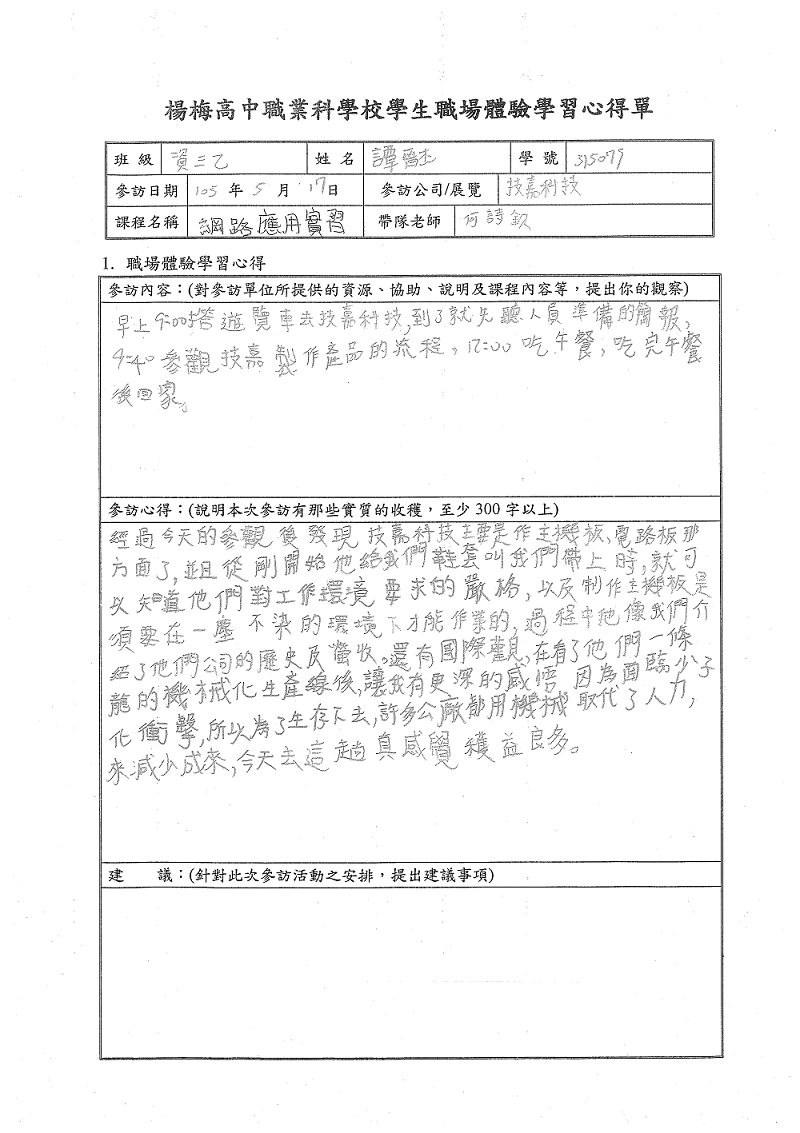 楊梅高中職業科學校學生職場體驗學習心得單
班 級 資三乙 姓 名 譚 學 號 315079
參訪日期 105 年 5 月 17日 參訪公司/展覽 技嘉科技
課程名稱 網路應用實習 帶隊老師 何詩釹
1. 職場體驗學習心得
參訪內容：(對參訪單位所提供的資源、協助、說明及課程內容等，提出你的觀察)
早上9:00搭遊覽車去技嘉科技,到了就先聽人員準備的簡報,
9:40參觀技嘉製作產品的流程,12:00吃午餐,吃完午餐
後回家。
參訪心得：(說明本次參訪有那些實質的收穫，至少 300 字以上)
經過今天的參觀後發現技嘉科技主要是作主機板、電路板那
方面了,並且從剛開始他給我們鞋套叫我們帶上時,就可
以知道他們對工作環境要求的嚴格,以及制作主機板是
須要在一塵不染的環境下才能作業的,過程中他像我們介
紹了他們公司的歷史及營收。還有國際觀,在看了他們一條
龍的機械化生產線後,讓我有更深的感悟,因為面臨少子
化衝擊,所以為了生存下去,許多公廠都用機械取代了人力,
來減少成來,今天去這趟真感覺穫益良多。
建 議：(針對此次參訪活動之安排，提出建議事項)